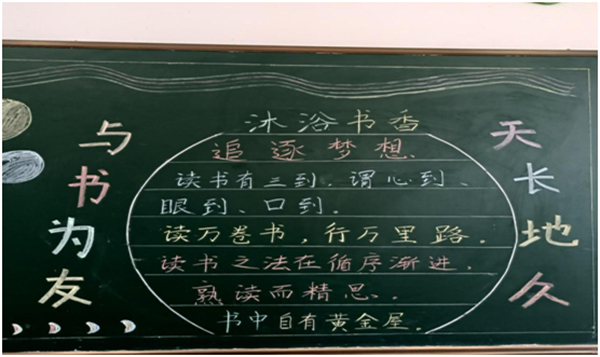 与书为友
沐浴书香
追逐梦想
读书有三到，谓心到、
眼到、口到。
读万卷书，行万里路。
读书之法在循序渐进，
熟读而精思。
书中自有黄金屋。
天长地久